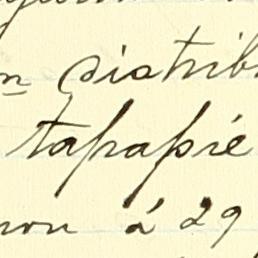 n distrib
tapapié
non á 29